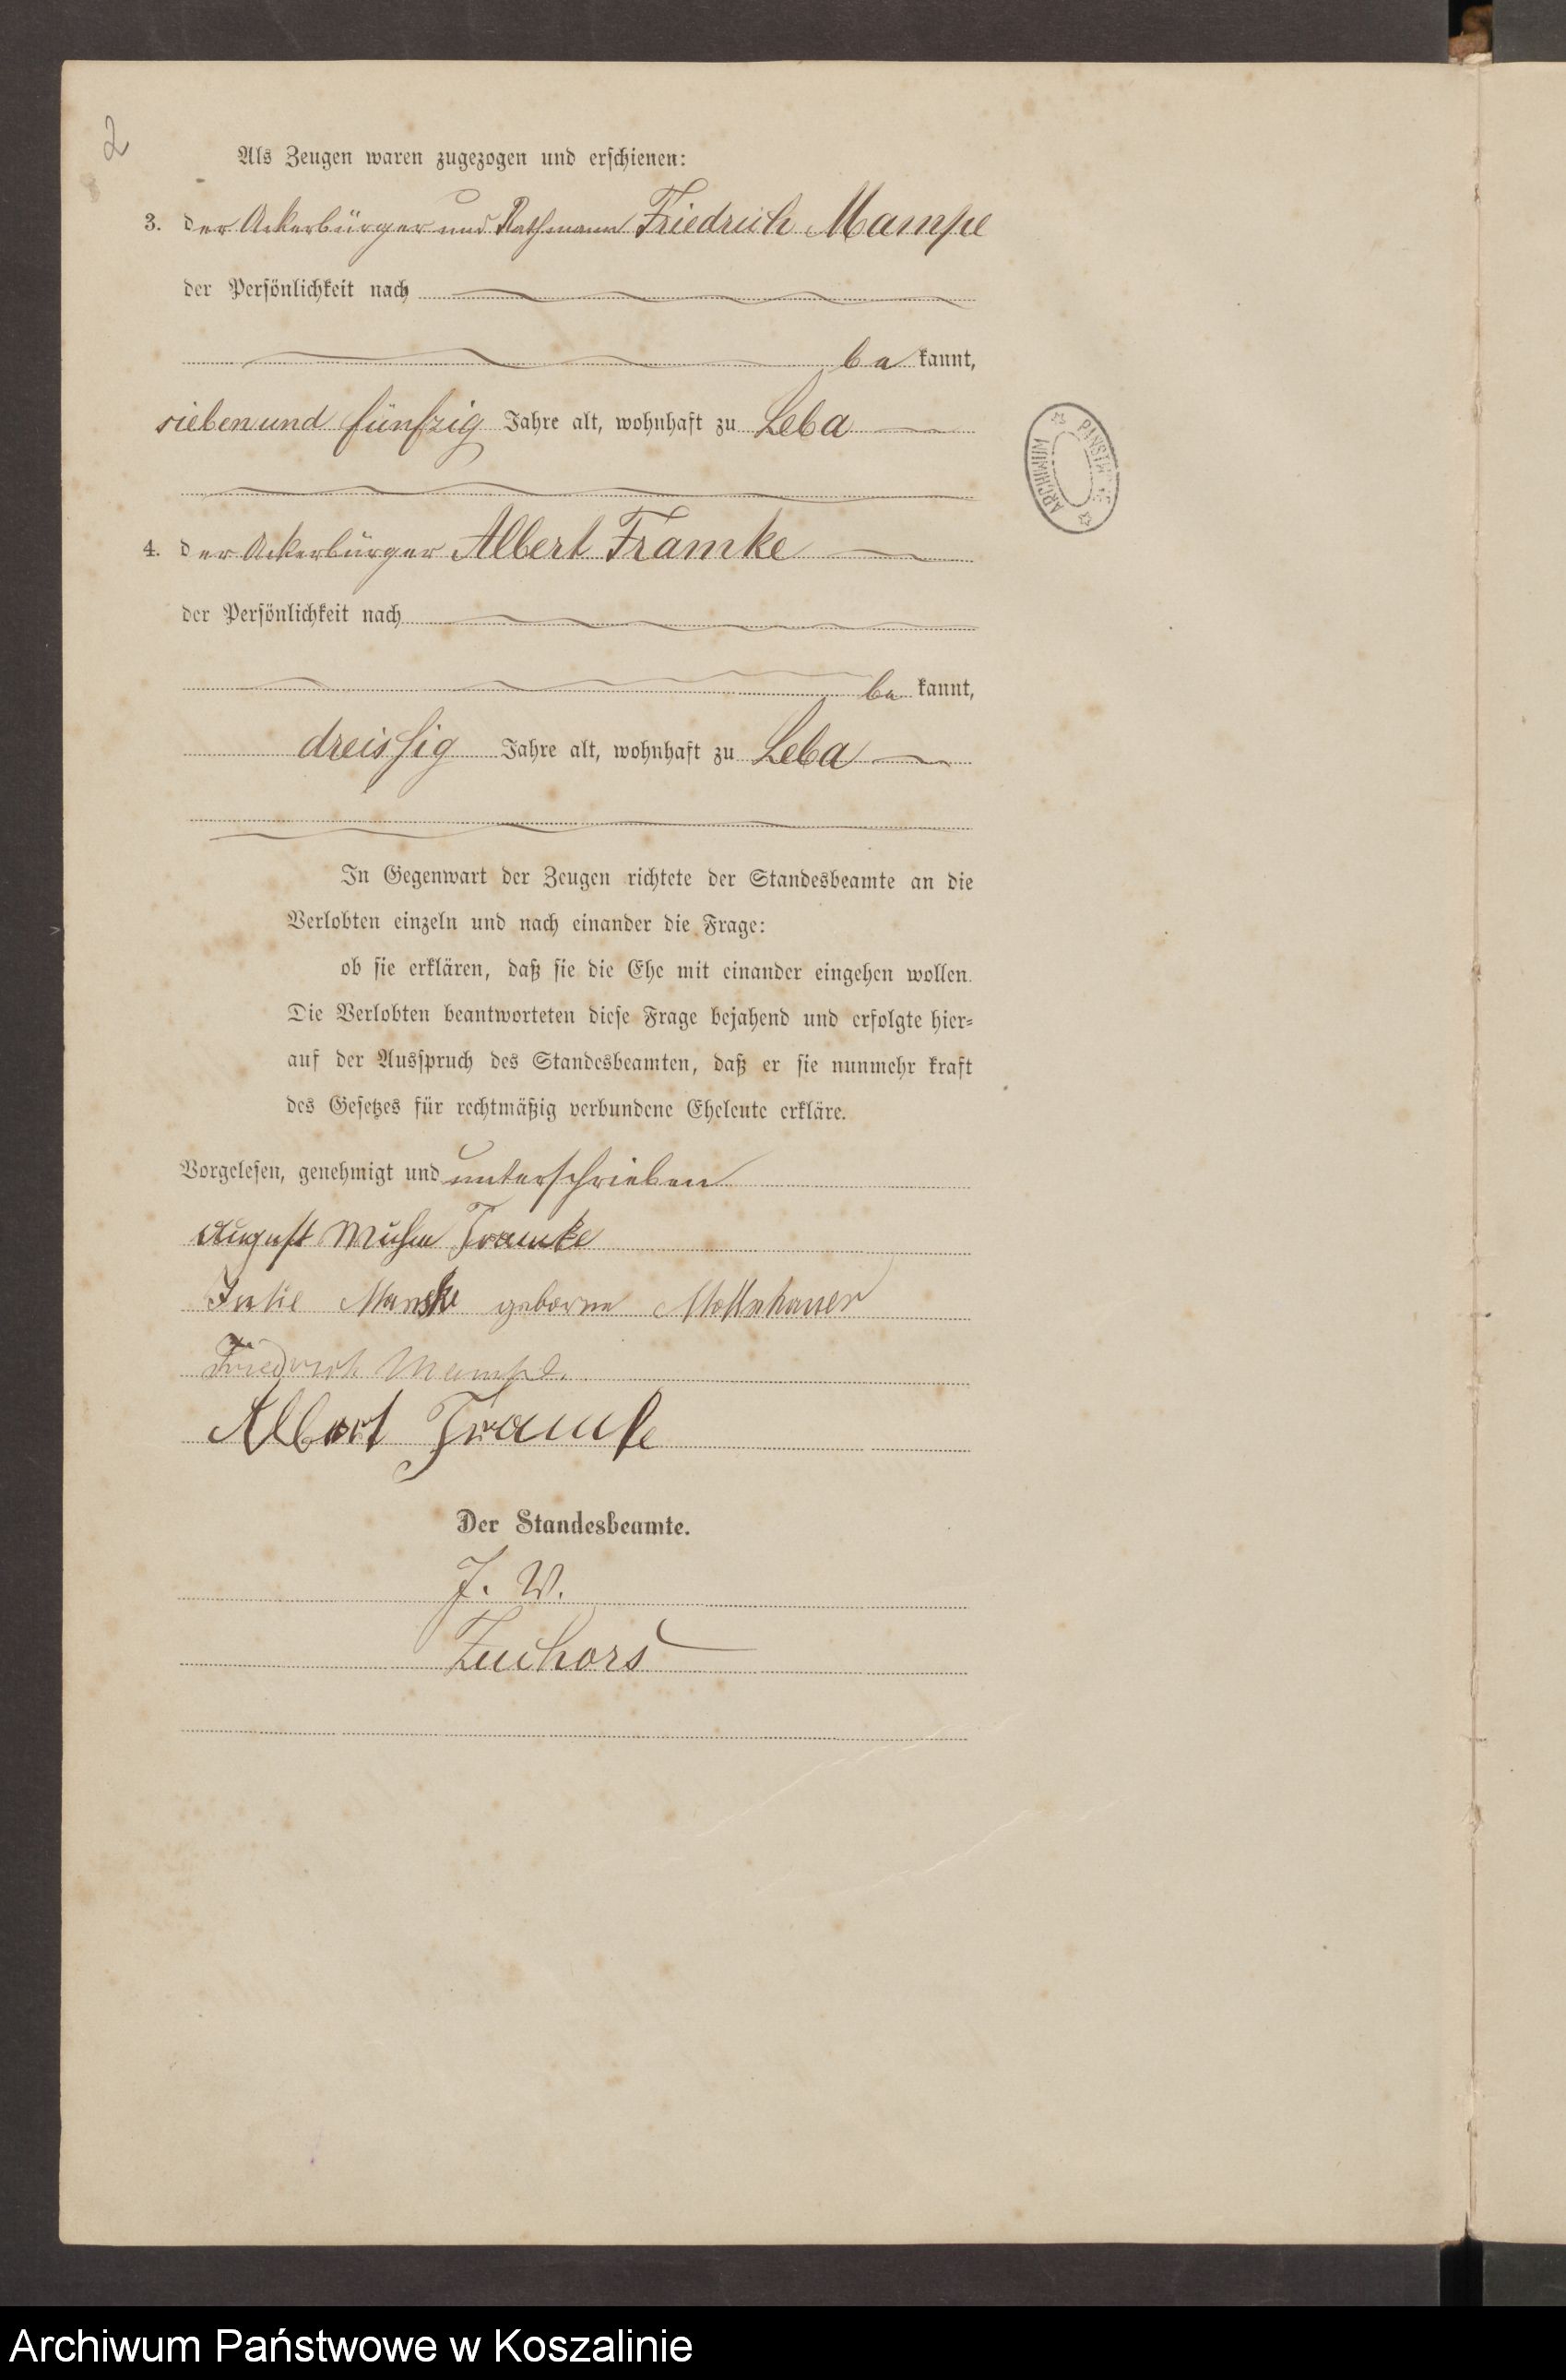 2
Als Zeugen waren zugezogen und erschienen:
3. der Ackerbürger und Rathmann Friedrich Mampe
der Persönlichkeit nach
be kannt,
siebenund fünfzig Jahre alt, wohnhaft zu Leba
ARCHIWUM PAŃSTW
4. der Ackerbürger Albert Framke
der Persönlichkeit nach
be kannt,
dreissig Jahre alt, wohnhaft zu Leba
In Gegenwart der Zeugen richtete der Standesbeamte an die
Verlobten einzeln und nach einander die Frage:
ob sie erklären, daß sie die Ehe mit einander eingehen wollen.
Die Verlobten beantworteten diese Frage bejahend und erfolgte hier-
auf der Ausspruch des Standesbeamten, daß er sie nunmehr kraft
des Gesetzes für rechtmäßig verbundene Eheleute erkläre.
Vorgelesen, genehmigt und unterschrieben
August Framke
Manske geborne
Friedrich Mampe.
Albert Framke
Der Standesbeamte.
J. V.
Archiwum Państwowe w Koszalinie